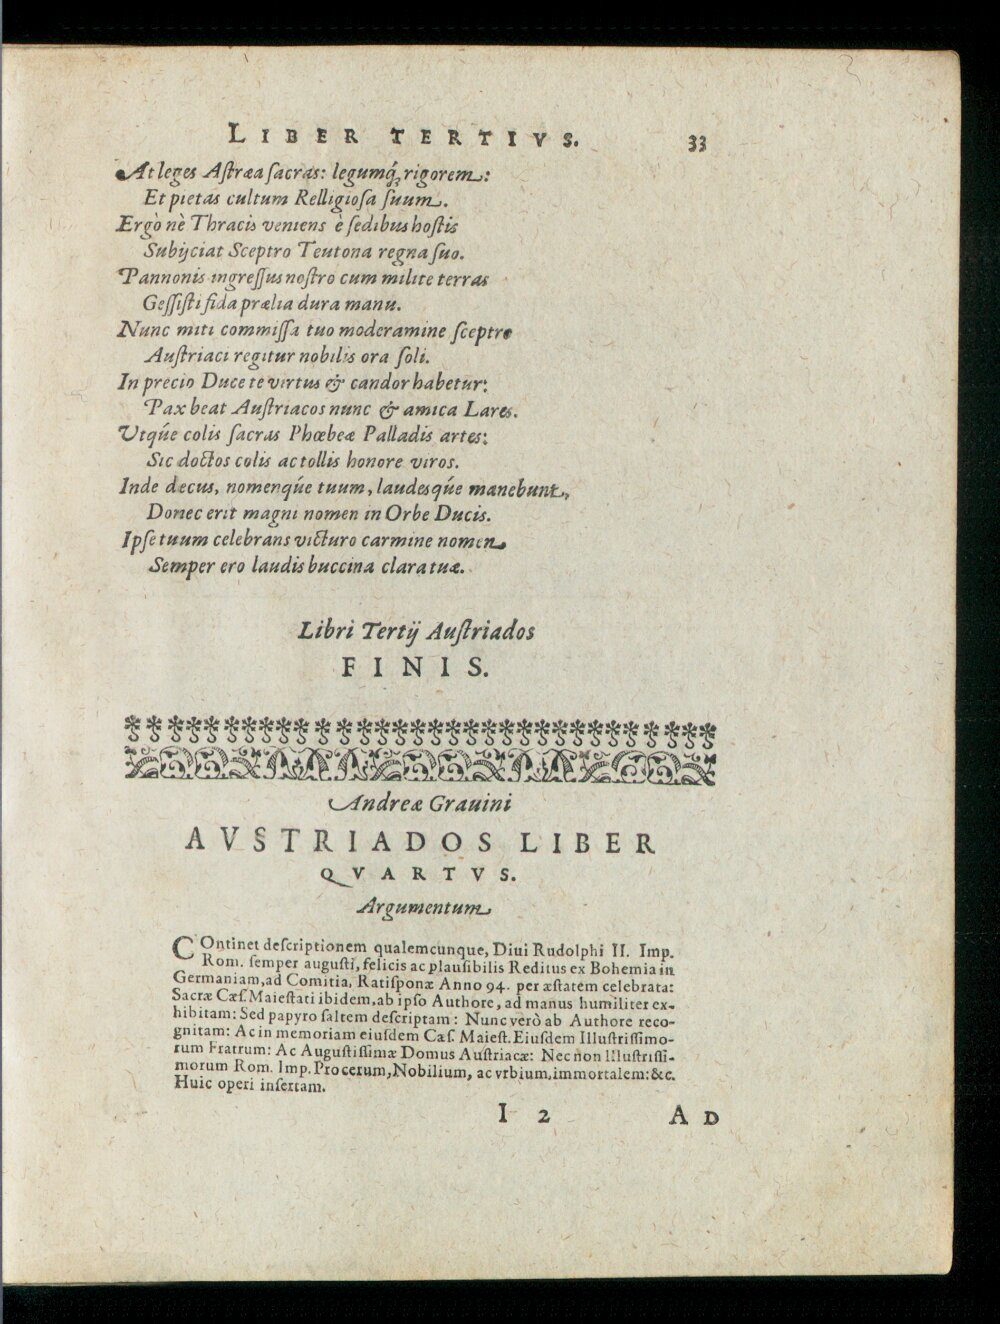 LIBER TERTIVS. 33
At leges Astræa sacras: legumq́; rigorem:
Et pietas cultum Relligiosa suum.
Ergò nè Thracis veniens è sedibus hostis
Subijciat Sceptro Teutona regna suo.
Pannonis ingressus nostro cum milite terras
Gessisti fida prælia dura manu.
Nunc miti commissa tuo moderamine sceptro
Austriaci regitur nobilis ora soli.
In precio Duce te virtus & candor habetur:
Pax beat Austriacos nunc & amica Lares.
Vtqúe colis sacras Phœbeæ Palladis artes:
Sic doctos colis ac tollis honore viros.
Inde decus, nomenqúe tuum, laudesqúe manebunt,
Donec erit magni nomen in Orbe Ducis.
Ipse tuum celebrans victuro carmine nomen
Semper ero laudis buccina clara tuæ.
Libri Tertij Austriados
FINIS.
Andreæ Grauini
AVSTRIADOS LIBER
QVARTVS.
Argumentum
COntinet descriptionem qualemcunque, Diui Rudolphi II. Imp.
Rom. semper augusti, felicis ac plausibilis Reditus ex Bohemia in
Germaniam, ad Comitia, Ratisponæ Anno 94. per æstatem celebrata:
Sacræ Cæs. Maiestati ibidem, ab ipso Authore, ad manus humiliter ex-
hibitam: Sed papyro saltem descriptam: Nunc verò ab Authore reco-
gnitam: Ac in memoriam eiusdem Cæs. Maiest. Eiusdem Illustrissimo-
rum Fratrum: Ac Augustissimæ Domus Austriacæ: Nec non Illustrissi-
morum Rom. Imp. Procerum, Nobilium, ac vrbium, immortalem: &c.
Huic operi insertam.
I 2 AD